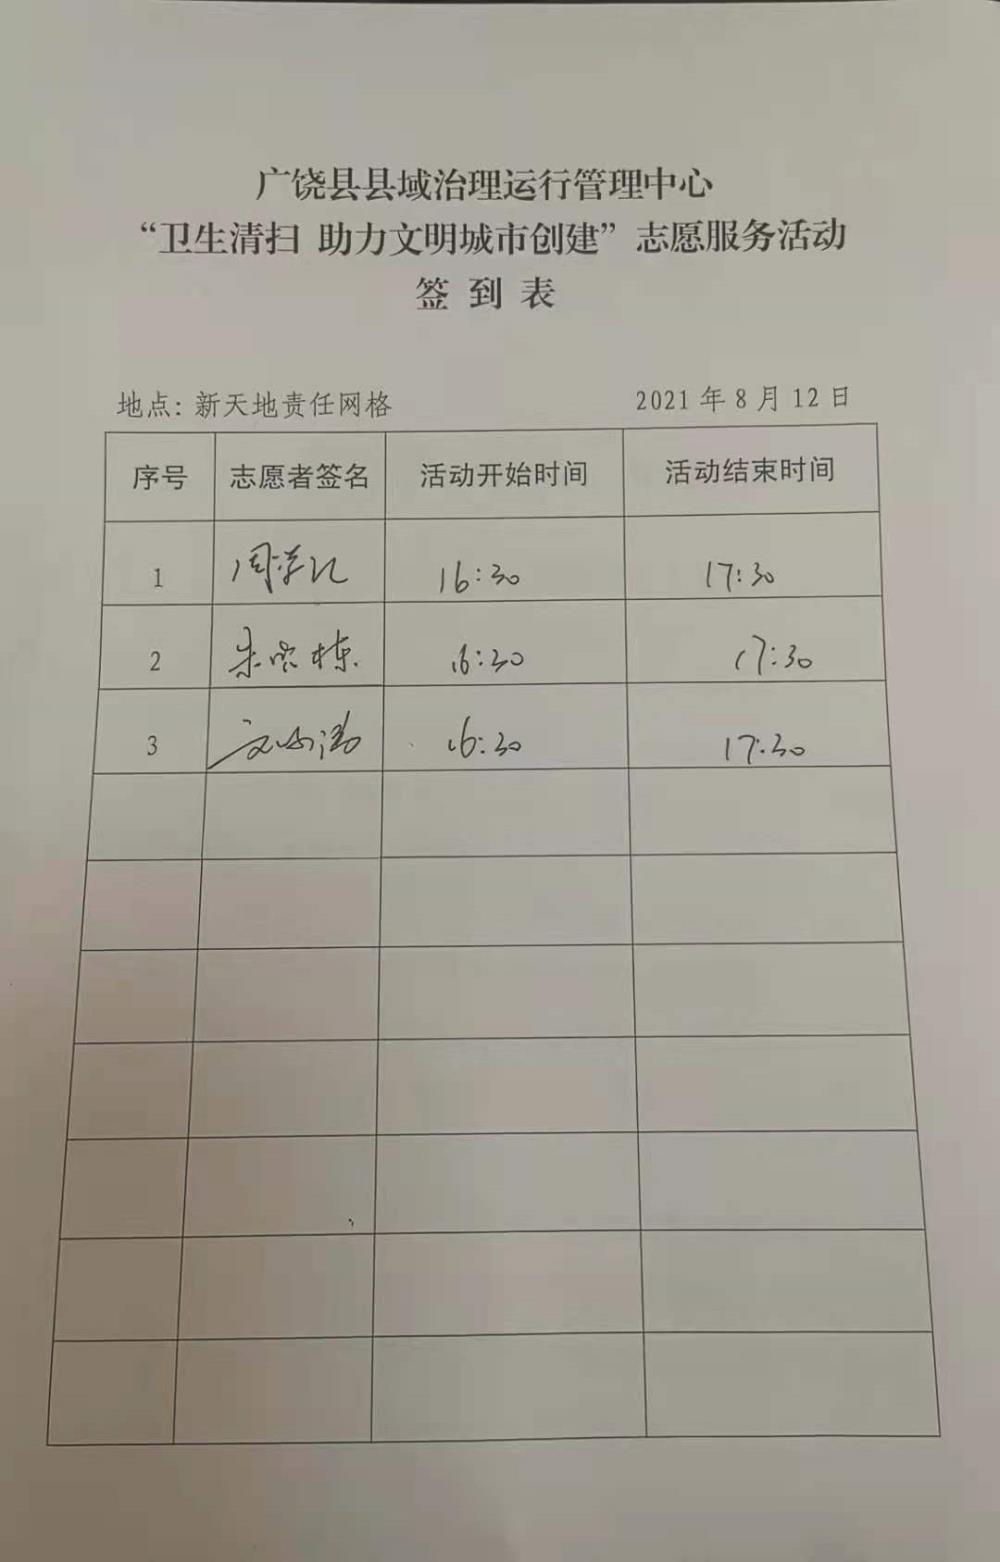 广饶县县域治理运行管理中心
“卫生清扫 助力文明城市创建”志愿服务活动
签到表
地点:新天地责任网格 2021年8月12日
序号 志愿者签名 活动开始时间 活动结束时间
1 周 16:30 17:30
2 朱 栋 16:30 17:30
3 16:30 17:30